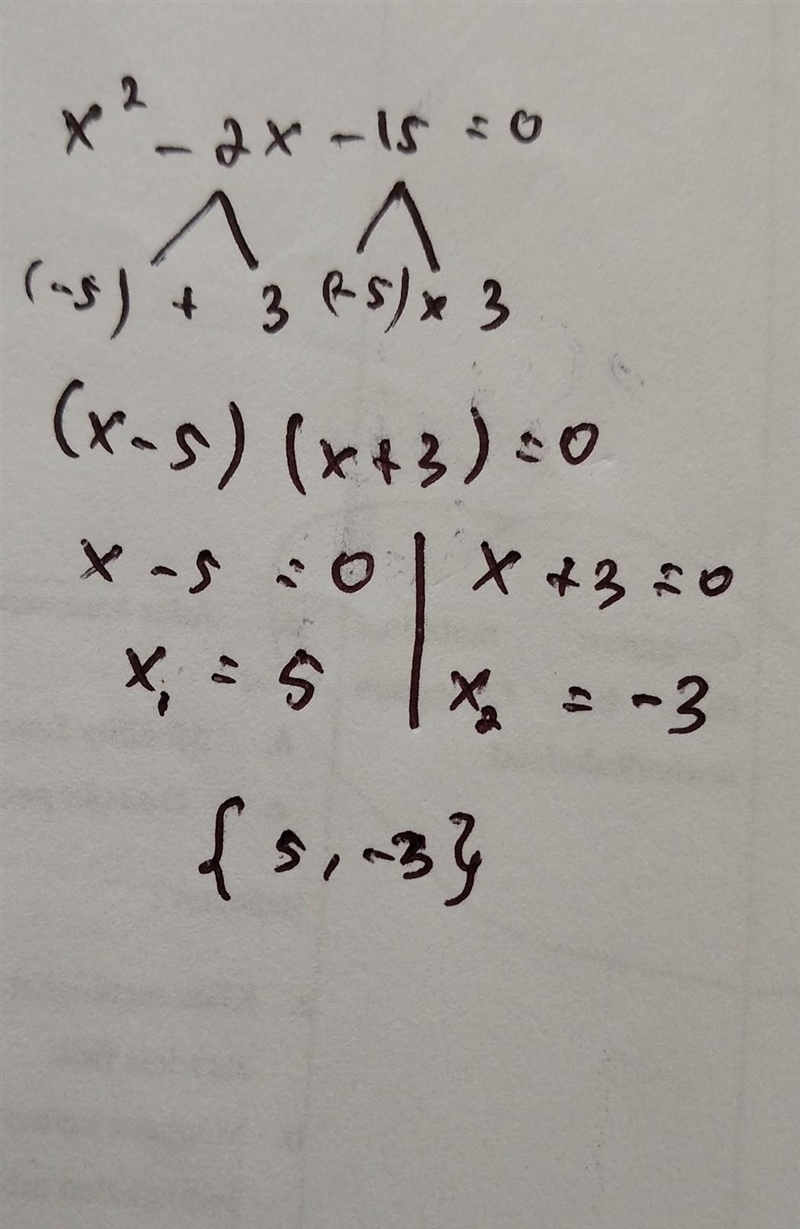 x² - 2x - 15 = 0
(-5) + 3 (-5) x 3
(x-5) (x+3) = 0
x - 5 = 0 | x + 3 = 0
x₁ = 5 | x₂ = -3
{5, -3}